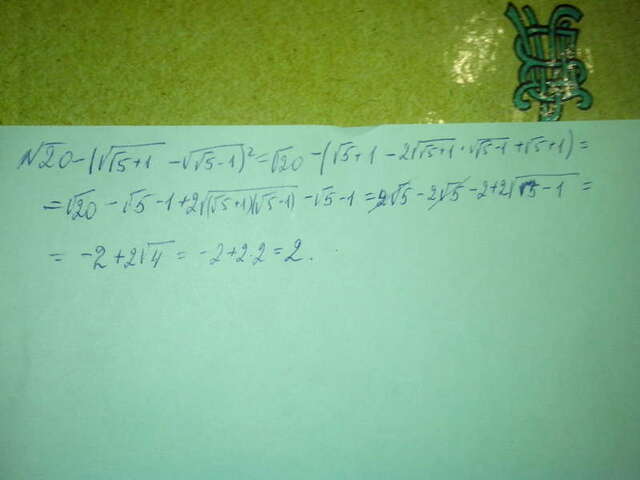 √20-(√(√5+1) -√(√5-1))²=√20-(√5+1-2√(√5+1)·√(√5-1)+√5+1)=
=√20-√5-1+2√((√5+1)(√5-1))-√5-1=2√5-2√5-2+2√(5-1)=
=-2+2√4=-2+2·2=2.